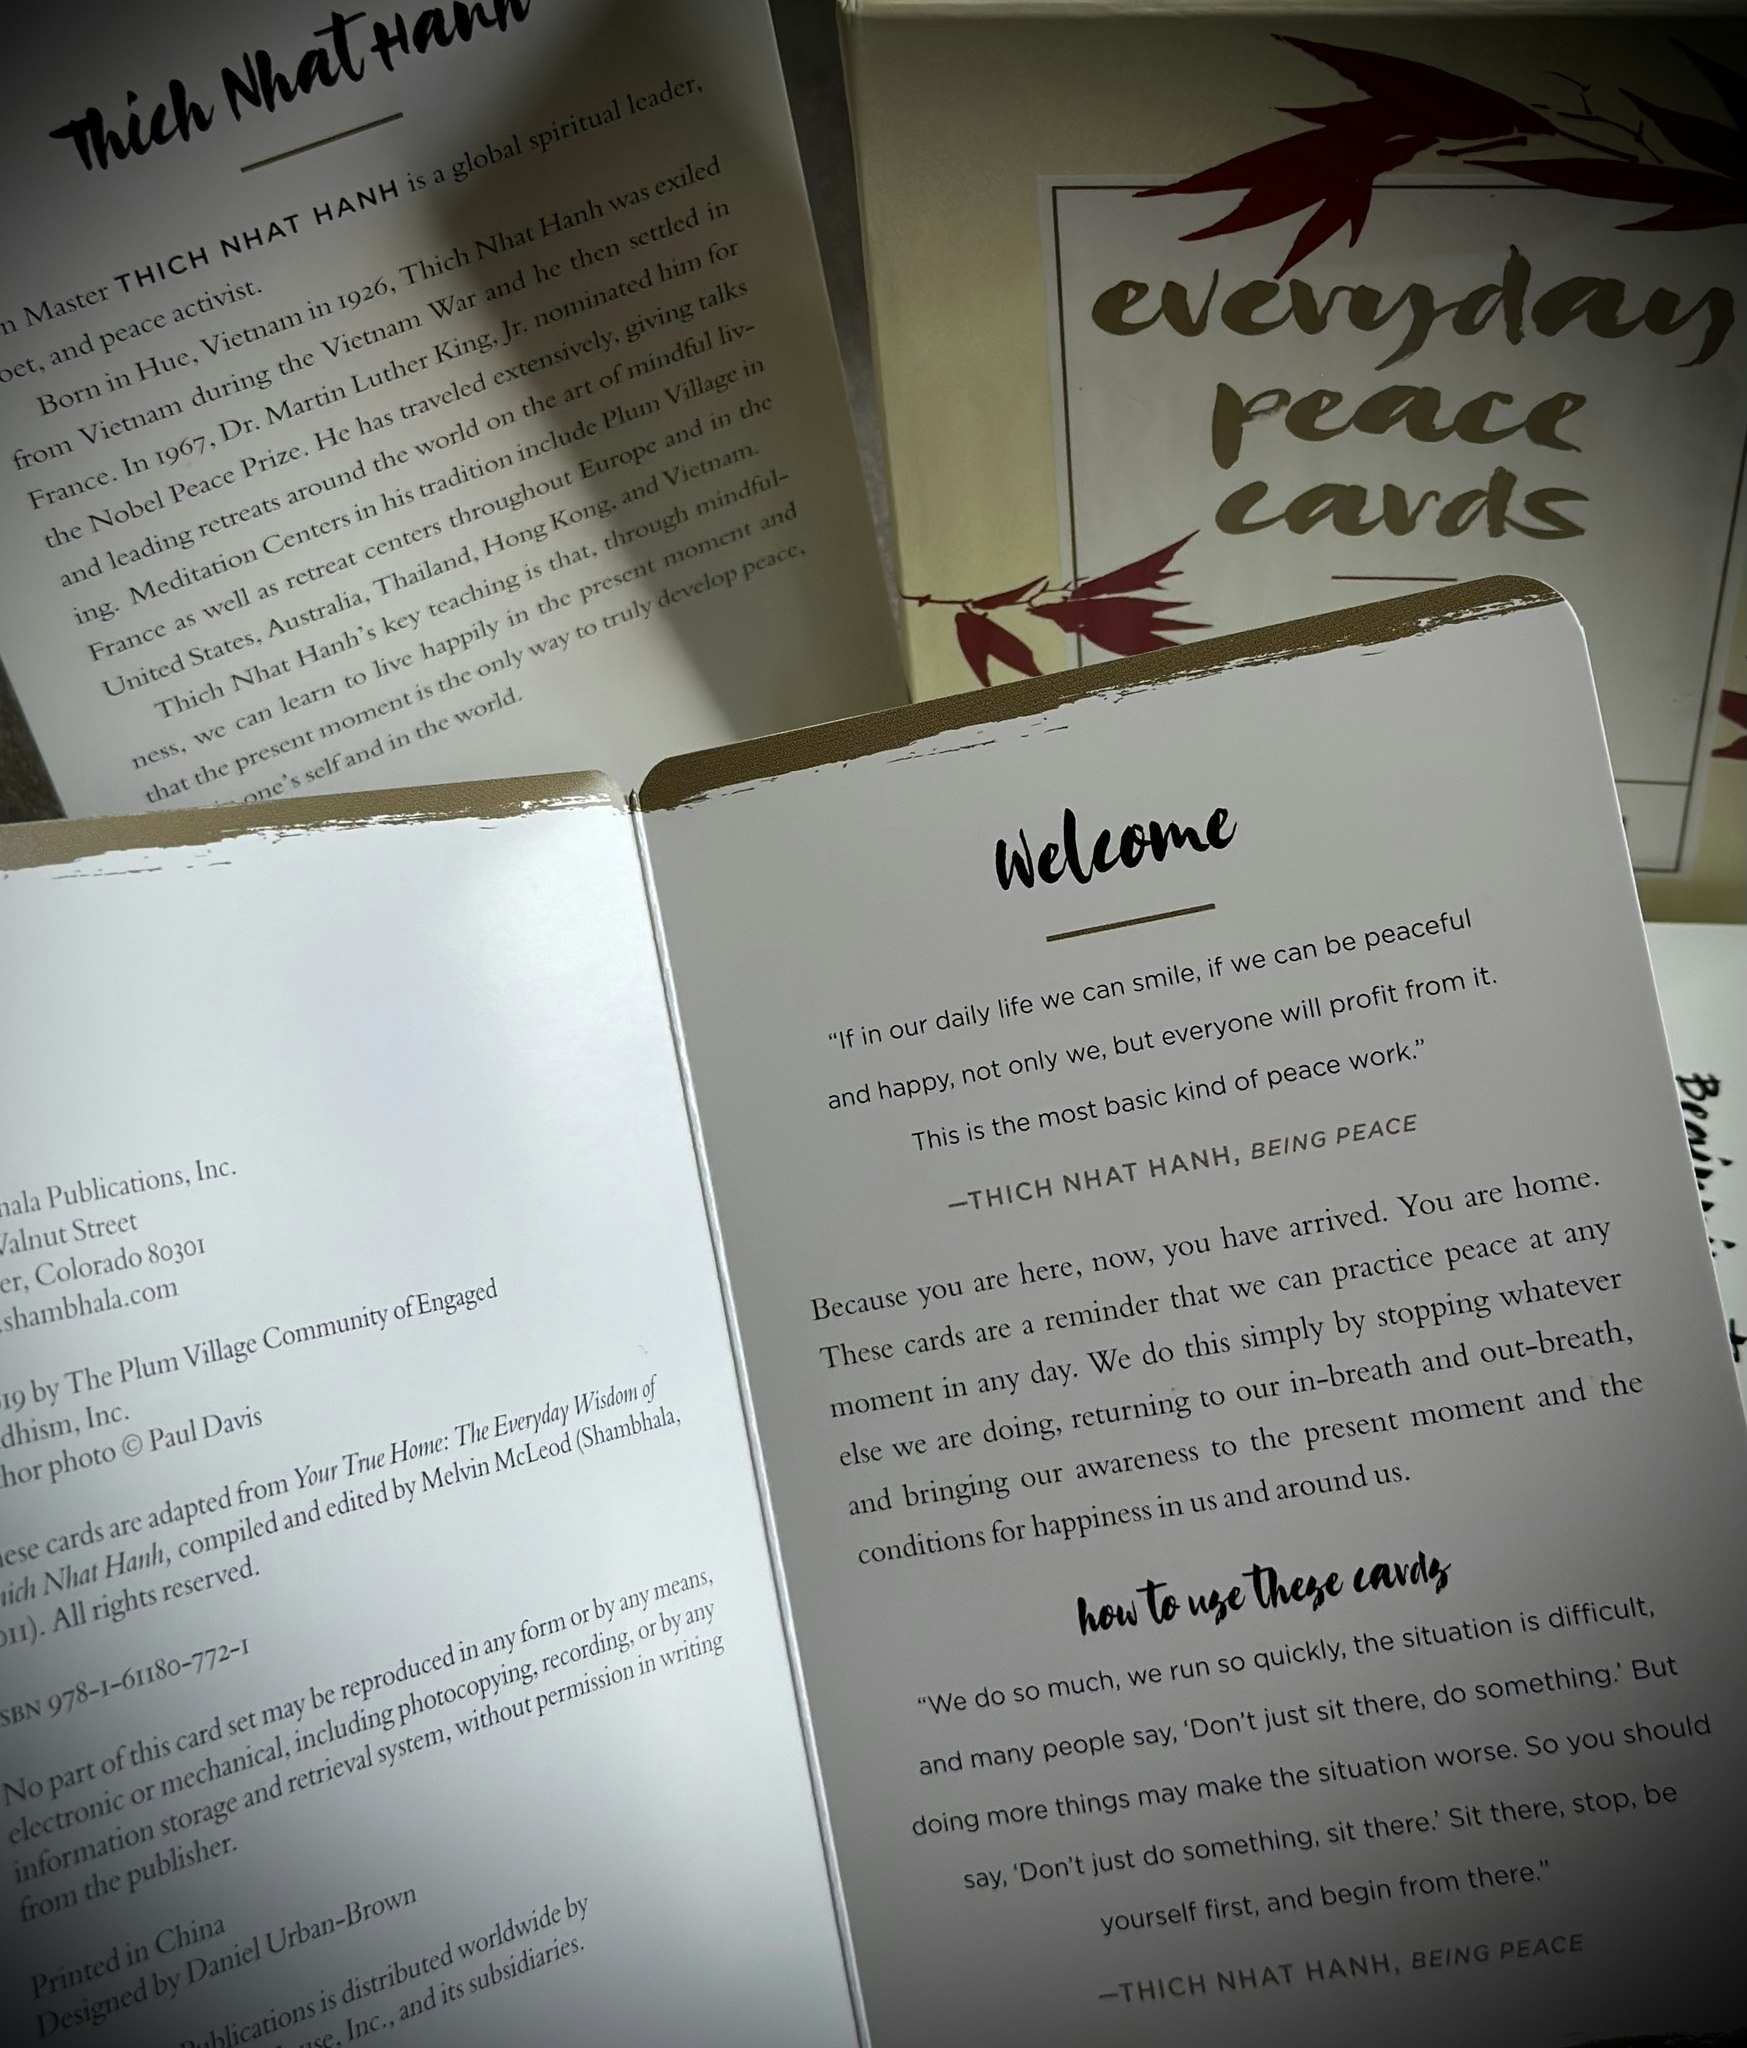 Thich Nhat Hanh
Master THICH NHAT HANH is a global spiritual leader,
and peace activist.
Born in Hue, Vietnam in 1926, Thich Nhat Hanh was exiled
from Vietnam during the Vietnam War and he then settled in
France. In 1967, Dr. Martin Luther King, Jr. nominated him for
the Nobel Peace Prize. He has traveled extensively, giving talks
and leading retreats around the world on the art of mindful liv-
ing. Meditation Centers in his tradition include Plum Village in
France as well as retreat centers throughout Europe and in the
United States, Australia, Thailand, Hong Kong, and Vietnam.
Thich Nhat Hanh's key teaching is that, through mindful-
ness, we can learn to live happily in the present moment and
that the present moment is the only way to truly develop peace,
one's self and in the world.
everyday
peace
cards
Publications, Inc.
Walnut Street
Colorado 80301
.shambhala.com
by The Plum Village Community of Engaged
Inc.
photo © Paul Davis
cards are adapted from Your True Home: The Everyday Wisdom of
Nhat Hanh, compiled and edited by Melvin McLeod (Shambhala,
011). All rights reserved.
ISBN 978-1-61180-772-1
No part of this card set may be reproduced in any form or by any means,
electronic or mechanical, including photocopying, recording, or by any
information storage and retrieval system, without permission in writing
from the publisher.
Printed in China
Designed by Daniel Urban-Brown
Publications is distributed worldwide by
Inc., and its subsidiaries.
Welcome
“If in our daily life we can smile, if we can be peaceful
and happy, not only we, but everyone will profit from it.
This is the most basic kind of peace work.”
—THICH NHAT HANH, BEING PEACE
Because you are here, now, you have arrived. You are home.
These cards are a reminder that we can practice peace at any
moment in any day. We do this simply by stopping whatever
else we are doing, returning to our in-breath and out-breath,
and bringing our awareness to the present moment and the
conditions for happiness in us and around us.
how to use these cards
“We do so much, we run so quickly, the situation is difficult,
and many people say, ‘Don’t just sit there, do something.’ But
doing more things may make the situation worse. So you should
say, ‘Don’t just do something, sit there.’ Sit there, stop, be
yourself first, and begin from there.”
—THICH NHAT HANH, BEING PEACE